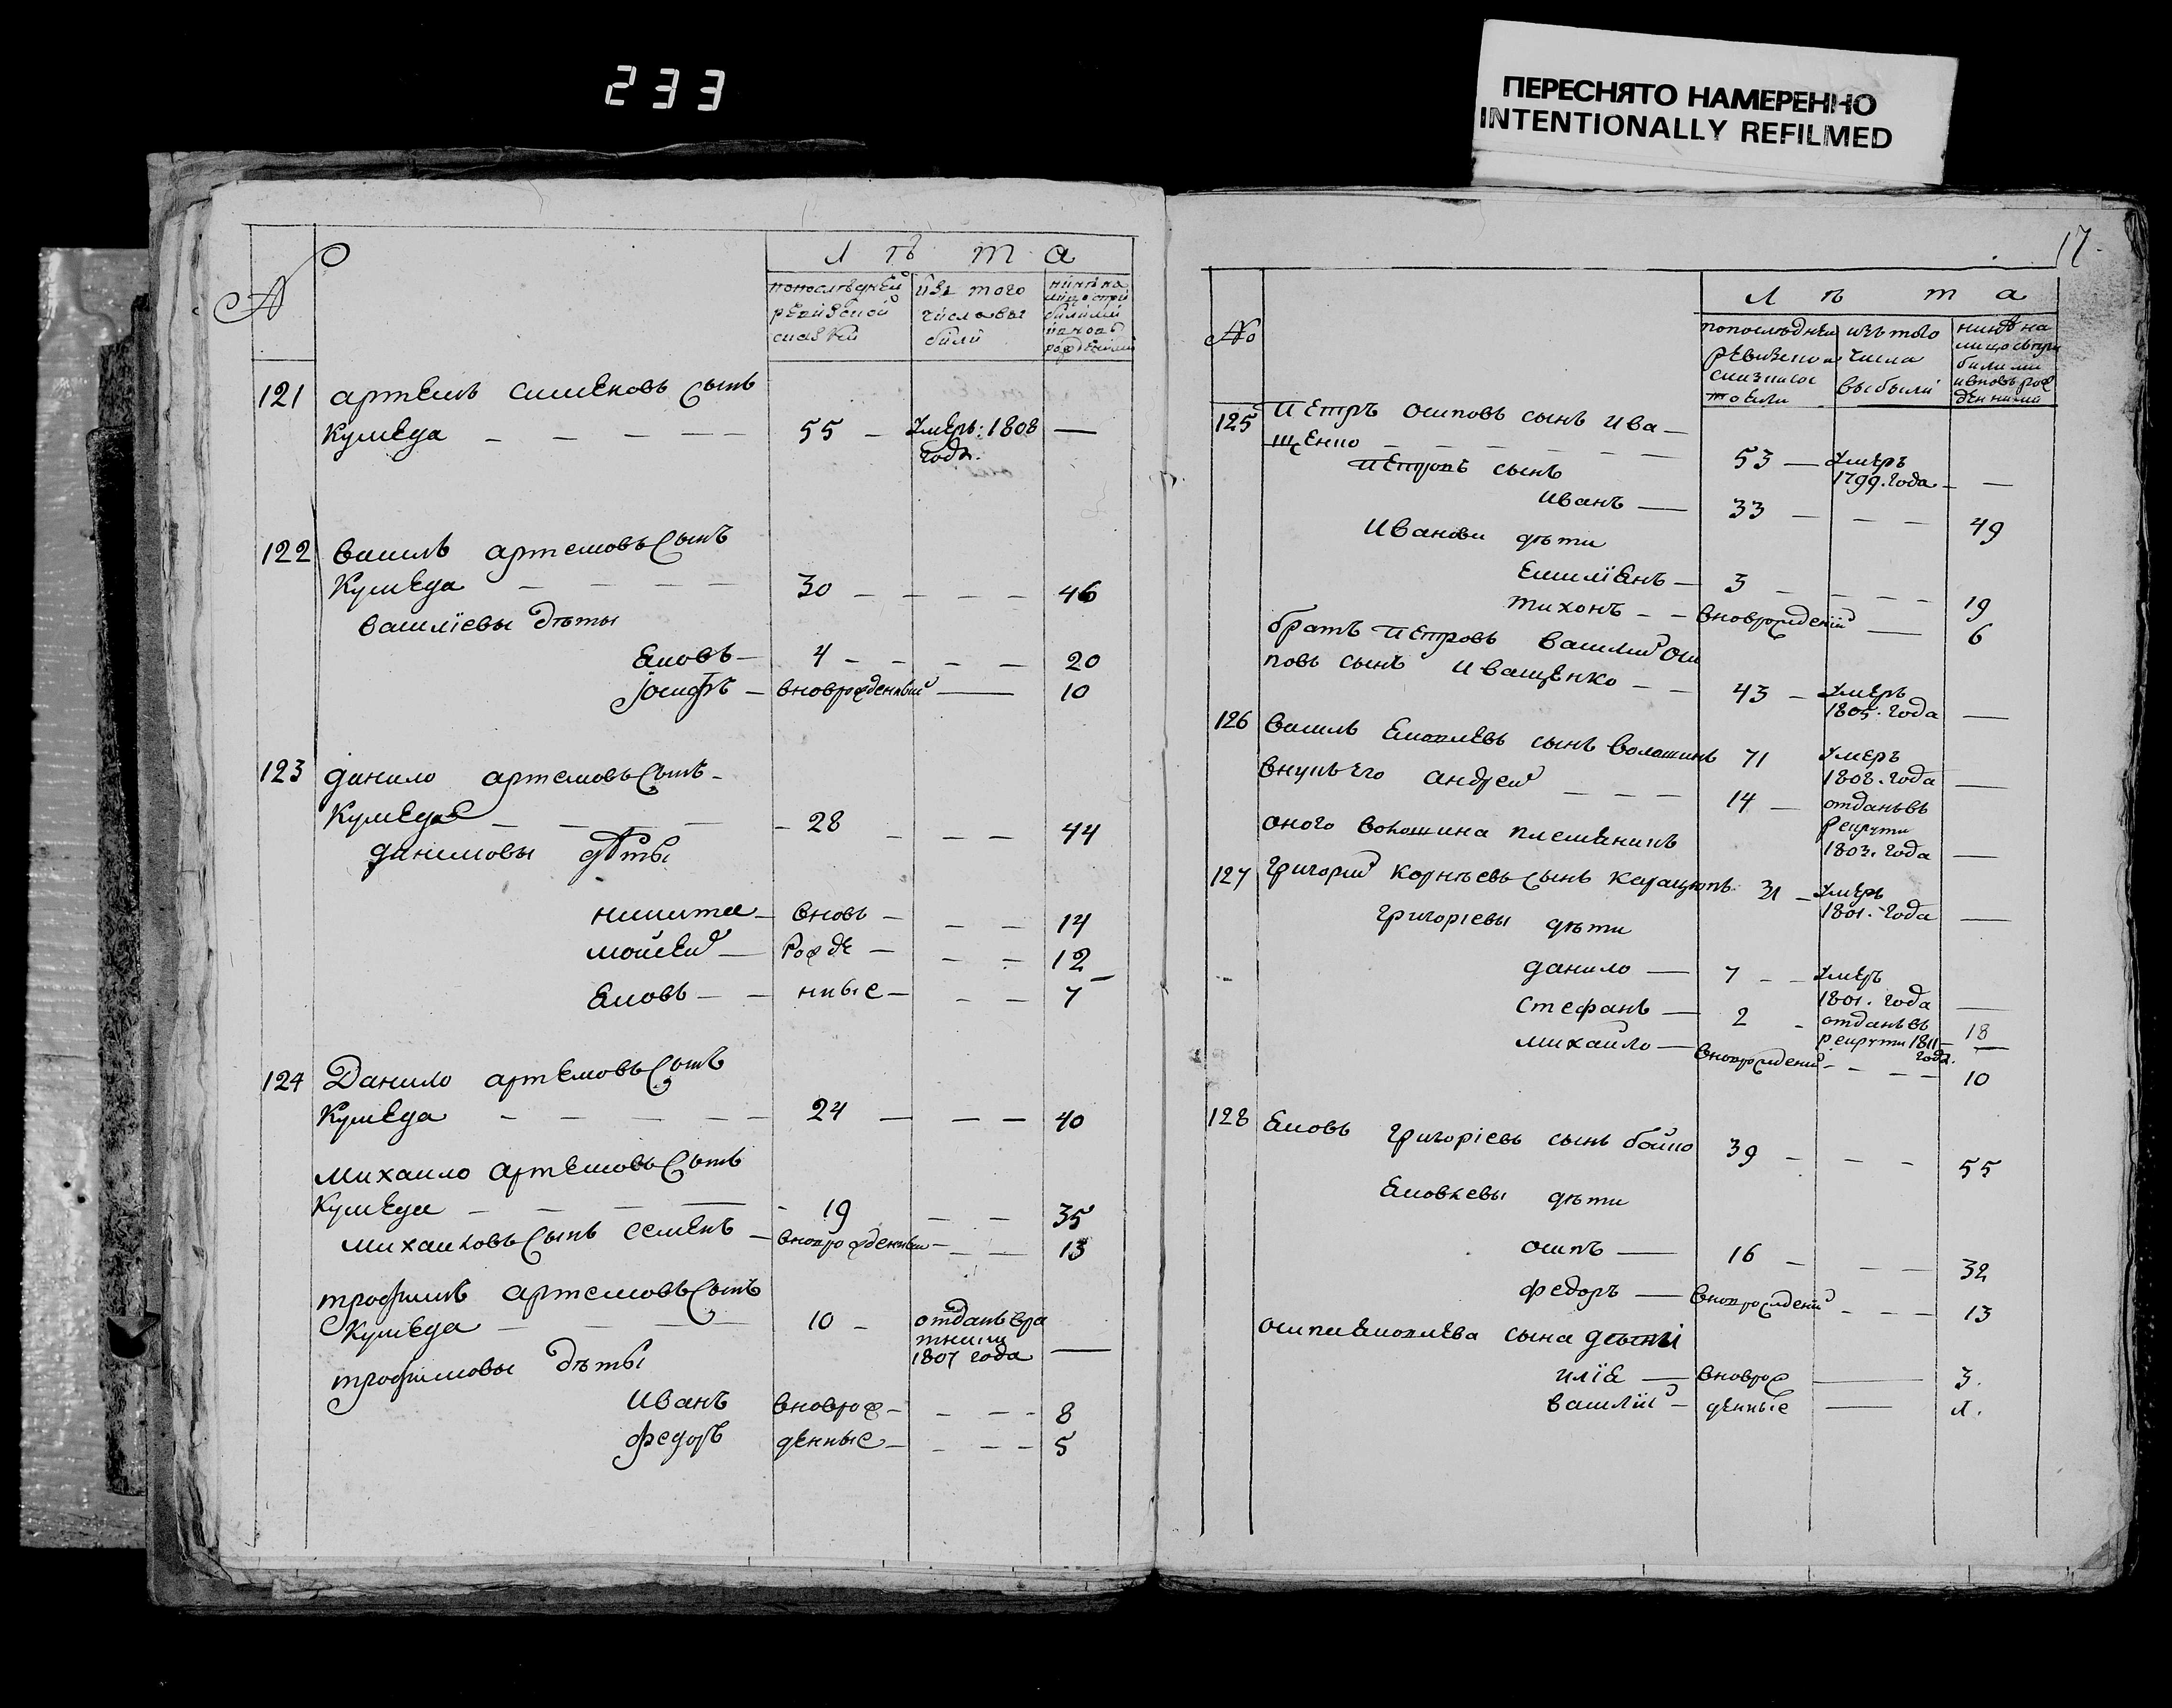 233
ПЕРЕСНЯТО НАМЕРЕННО
INTENTIONALLY REFILMED
Л ѣ т а
№
попоследней ревизской
изъ того числа выбыли
121 артемъ сименовъ сынъ
Кумеда — — — — — 55 — умеръ: 1808 —
года.
122 василь артемовъ сынъ
Кумеда — — — — 30 — — — — 46
василїевы дѣты
Яковъ — 4 — — — — 20
Іосифъ — вноврожденный — 10
123 данило артемовъ сынъ —
Кумеда — — — — 28 — — — 44
даниловы дѣты
никита — вновь — — — 14
мойсей — Рожде — — — 12
Яковъ — — нные — — — 7
124 Данило артемовъ сынъ
Кумеда — — — — — 24 — — — 40
Михайло артемовъ сынъ
Кумеда — — — — — 19 — — 35
михайловъ сынъ семенъ — вноврожденный — — — 13
трофимъ артемовъ сынъ
Кумеда — — — 10 — отданъ в
1807 года —
трофимовы дѣты
Иванъ вноврож — — — — 8
федоръ денные — — — — 5
17
Л ѣ т а
№
попоследней ревизской
изъ того числа выбыли
125 Петръ осиповъ сынъ Ива —
щенко — — — — — 53 — умеръ
1799. года — —
Петровъ сынъ
Иванъ — 33 — — — 49
Ивановы дѣти
Емилїянъ — 3 — — — — 19
тихонъ — — вноврожденїй — 6
братъ Петровъ василий оси
повъ сынъ Иващенко — — 43 — умеръ
1805. года —
126 василь Яковлевъ сынъ волошинъ 71 умеръ
1808. года —
внукъ его андрей — — — 14 — отданъ въ
рекруты
1803. года —
оного волошина племѣникъ
127 григорий корнѣевъ сынъ 31 — умеръ
1801. года —
григорїевы дѣти
данило — 7 — — умеръ
1801. года —
стефанъ — 2 — отданъ въ 18
рекруты 1811 —
года.
михайло — вноврожденїй — — — — 10
128 Яковъ григорїевъ сынъ бойко 39 — — — 55
Яковлевы дѣти
осипъ — 16 — — — 32
федоръ — вноврожденїй — — — 13
осипа Яковлева сына дѣты
илїя — вноврож — 3.
василїй — денные — 1.